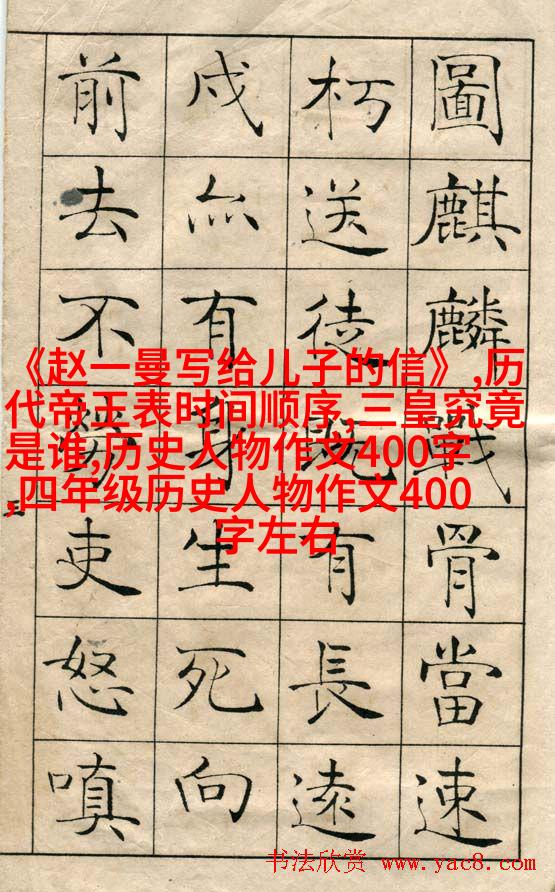 圖麒麟戰骨當速
朽送徒既有長遠
戍亦有身生死向
前去不勞吏怒嗔
《赵一曼写给儿子的信》,历
代帝王表时间顺序,三皇究竟
是谁,历史人物作文400字
,四年级历史人物作文400
字左右
书法欣赏 www.yac8.com